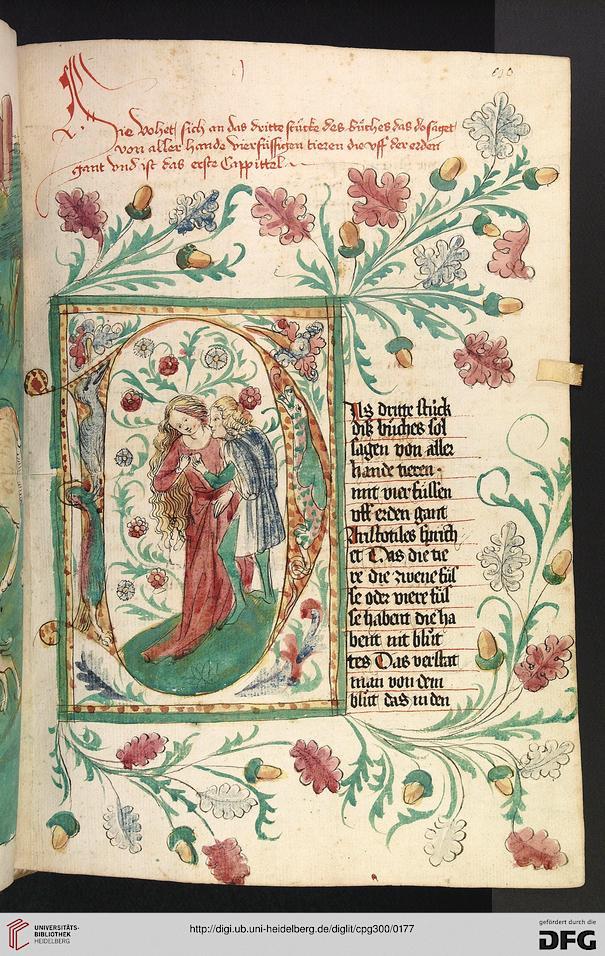 Hie vohet sich an das dritte stücke des büches das do saget
von aller hande vierfüssigen tieren die vff der erden
gant vnd ist das erste Cappittel
Das dritte stück
diß büches sol
sagen von aller
hande tieren
mit vier füssen
vff erden gant
Aristotiles sprich
et Das die tie
re die zwene füs
se oder viere füs
se habent die ha
bent vil blüt
tes Das verstat
man von dem
blüt das in den
UNIVERSITÄTS-
BIBLIOTHEK
HEIDELBERG
http://digi.ub.uni-heidelberg.de/diglit/cpg300/0177
gefördert durch die
DFG